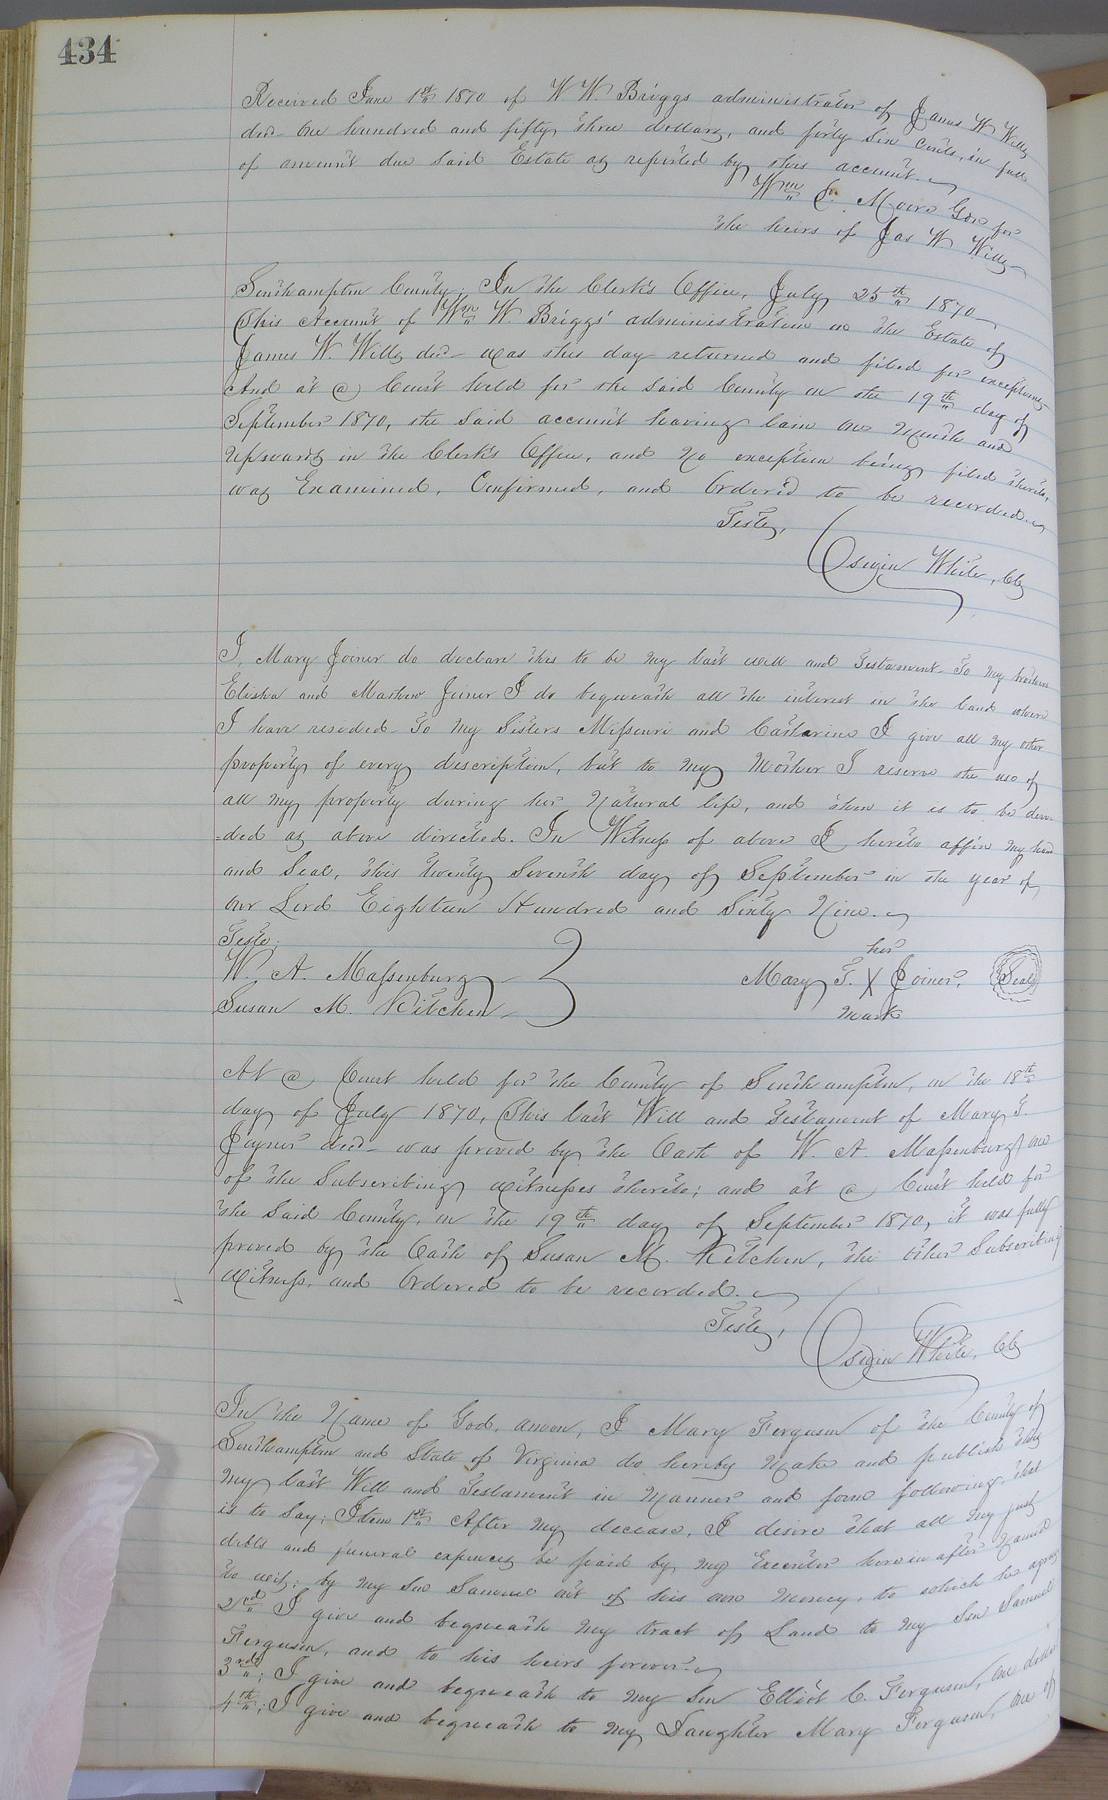 434
Received June 1st 1870 of W. W. Briggs administrator of James W. Wills
decd One hundred and fifty three dollars, and forty six cents, in full
of amount due said Estate as reported by this account.
Wm C. Moore Gdn for
the heirs of Jas W. Wills
Southampton County; In the Clerk's Office, July 25th 1870
This Account of Wm W. Briggs' administration on the Estate of
James W. Wills decd was this day returned and filed for exceptions
And at a Court held for the said County on the 19th day of
September 1870, the said account having lain one Month and
Upwards in the Clerk's Office, and No exception being filed thereto,
was Examined, Confirmed, and Ordered to be recorded.
Teste,
Osgin White, Clk
I, Mary Joiner do declare this to be my last will and Testament. To my brothers
Elisha and Mathew Joiner I do bequeath all the interest in the land where
I have resided. To my Sisters Missouri and Catharine I give all my other
property of every description, but to my Mother I reserve the use of
all my property during her Natural life, and then it is to be divi-
-ded as above directed. In Witness of above I hereto affix my hand
and Seal, this twenty Seventh day of September in the year of
our Lord Eighteen Hundred and Sixty Nine.
Teste;
her
W. A. Massenburg
Mary T. X Joiner, Seal
Susan M. Kitchen
mark
At a Court held for the County of Southampton, on the 18th
day of July 1870, This last Will and Testament of Mary T.
Joyner decd was proved by the Oath of W. A. Massenburg, one
of the Subscribing witnesses thereto; and at a Court held for
the said County, on the 19th day of September 1870, it was fully
proved by the Oath of Susan M. Kitchen, the other Subscribing
witness, and Ordered to be recorded.
Teste,
Osgin White, Clk
In the Name of God, amen, I Mary Ferguson of the County of
Southampton and State of Virginia do hereby Make and publish this
my last Will and Testament in Manner and form following, that
is to say; Item 1st After my decease, I desire that all my just
debts and funeral expences be paid by my Executor herein after Named
to wit; by my Son Samuel out of his own money, to which he agrees
2nd I give and bequeath my tract of Land to my Son Samuel
Ferguson, and to his heirs forever.
3rd; I give and bequeath to my Son Elliot C. Ferguson, one dollar
4th; I give and bequeath to my Daughter Mary Ferguson, one of